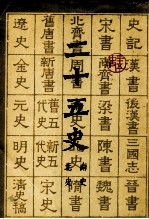 史記 漢書 後漢書 三國志 晉書
宋書 南齊書 梁書 陳書 魏書
北齊書 周書
二十五史
南史
北史
舊唐書 新唐書 舊五代史 新五代史 宋史
遼史 金史 元史 明史 清史稿